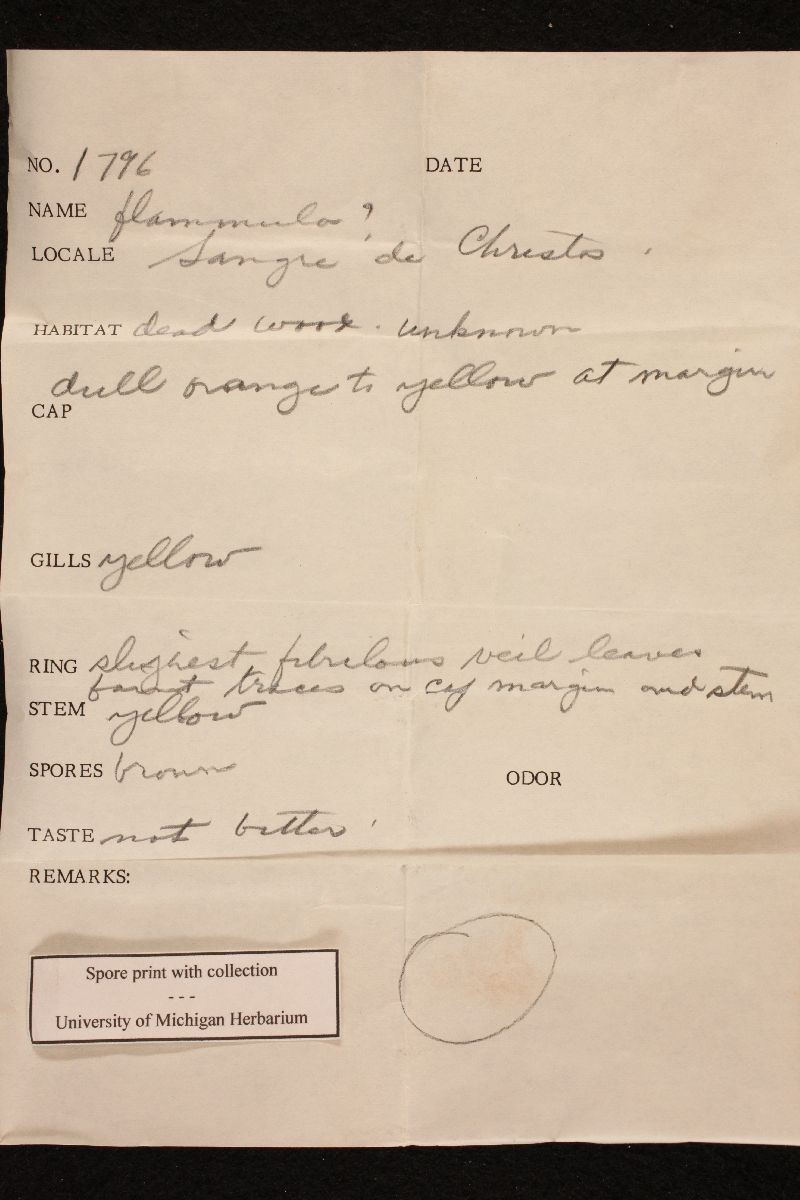 NO. 1796 DATE
NAME flammula?
LOCALE Sangre de Christos.
HABITAT dead wood. unknown
dull orange to yellow at margin
CAP
GILLS yellow
RING slighest fibrilous veil leaves
faint traces on cap margin and stem
STEM yellow
SPORES brown
ODOR
TASTE not bitter
REMARKS:
Spore print with collection
---
University of Michigan Herbarium